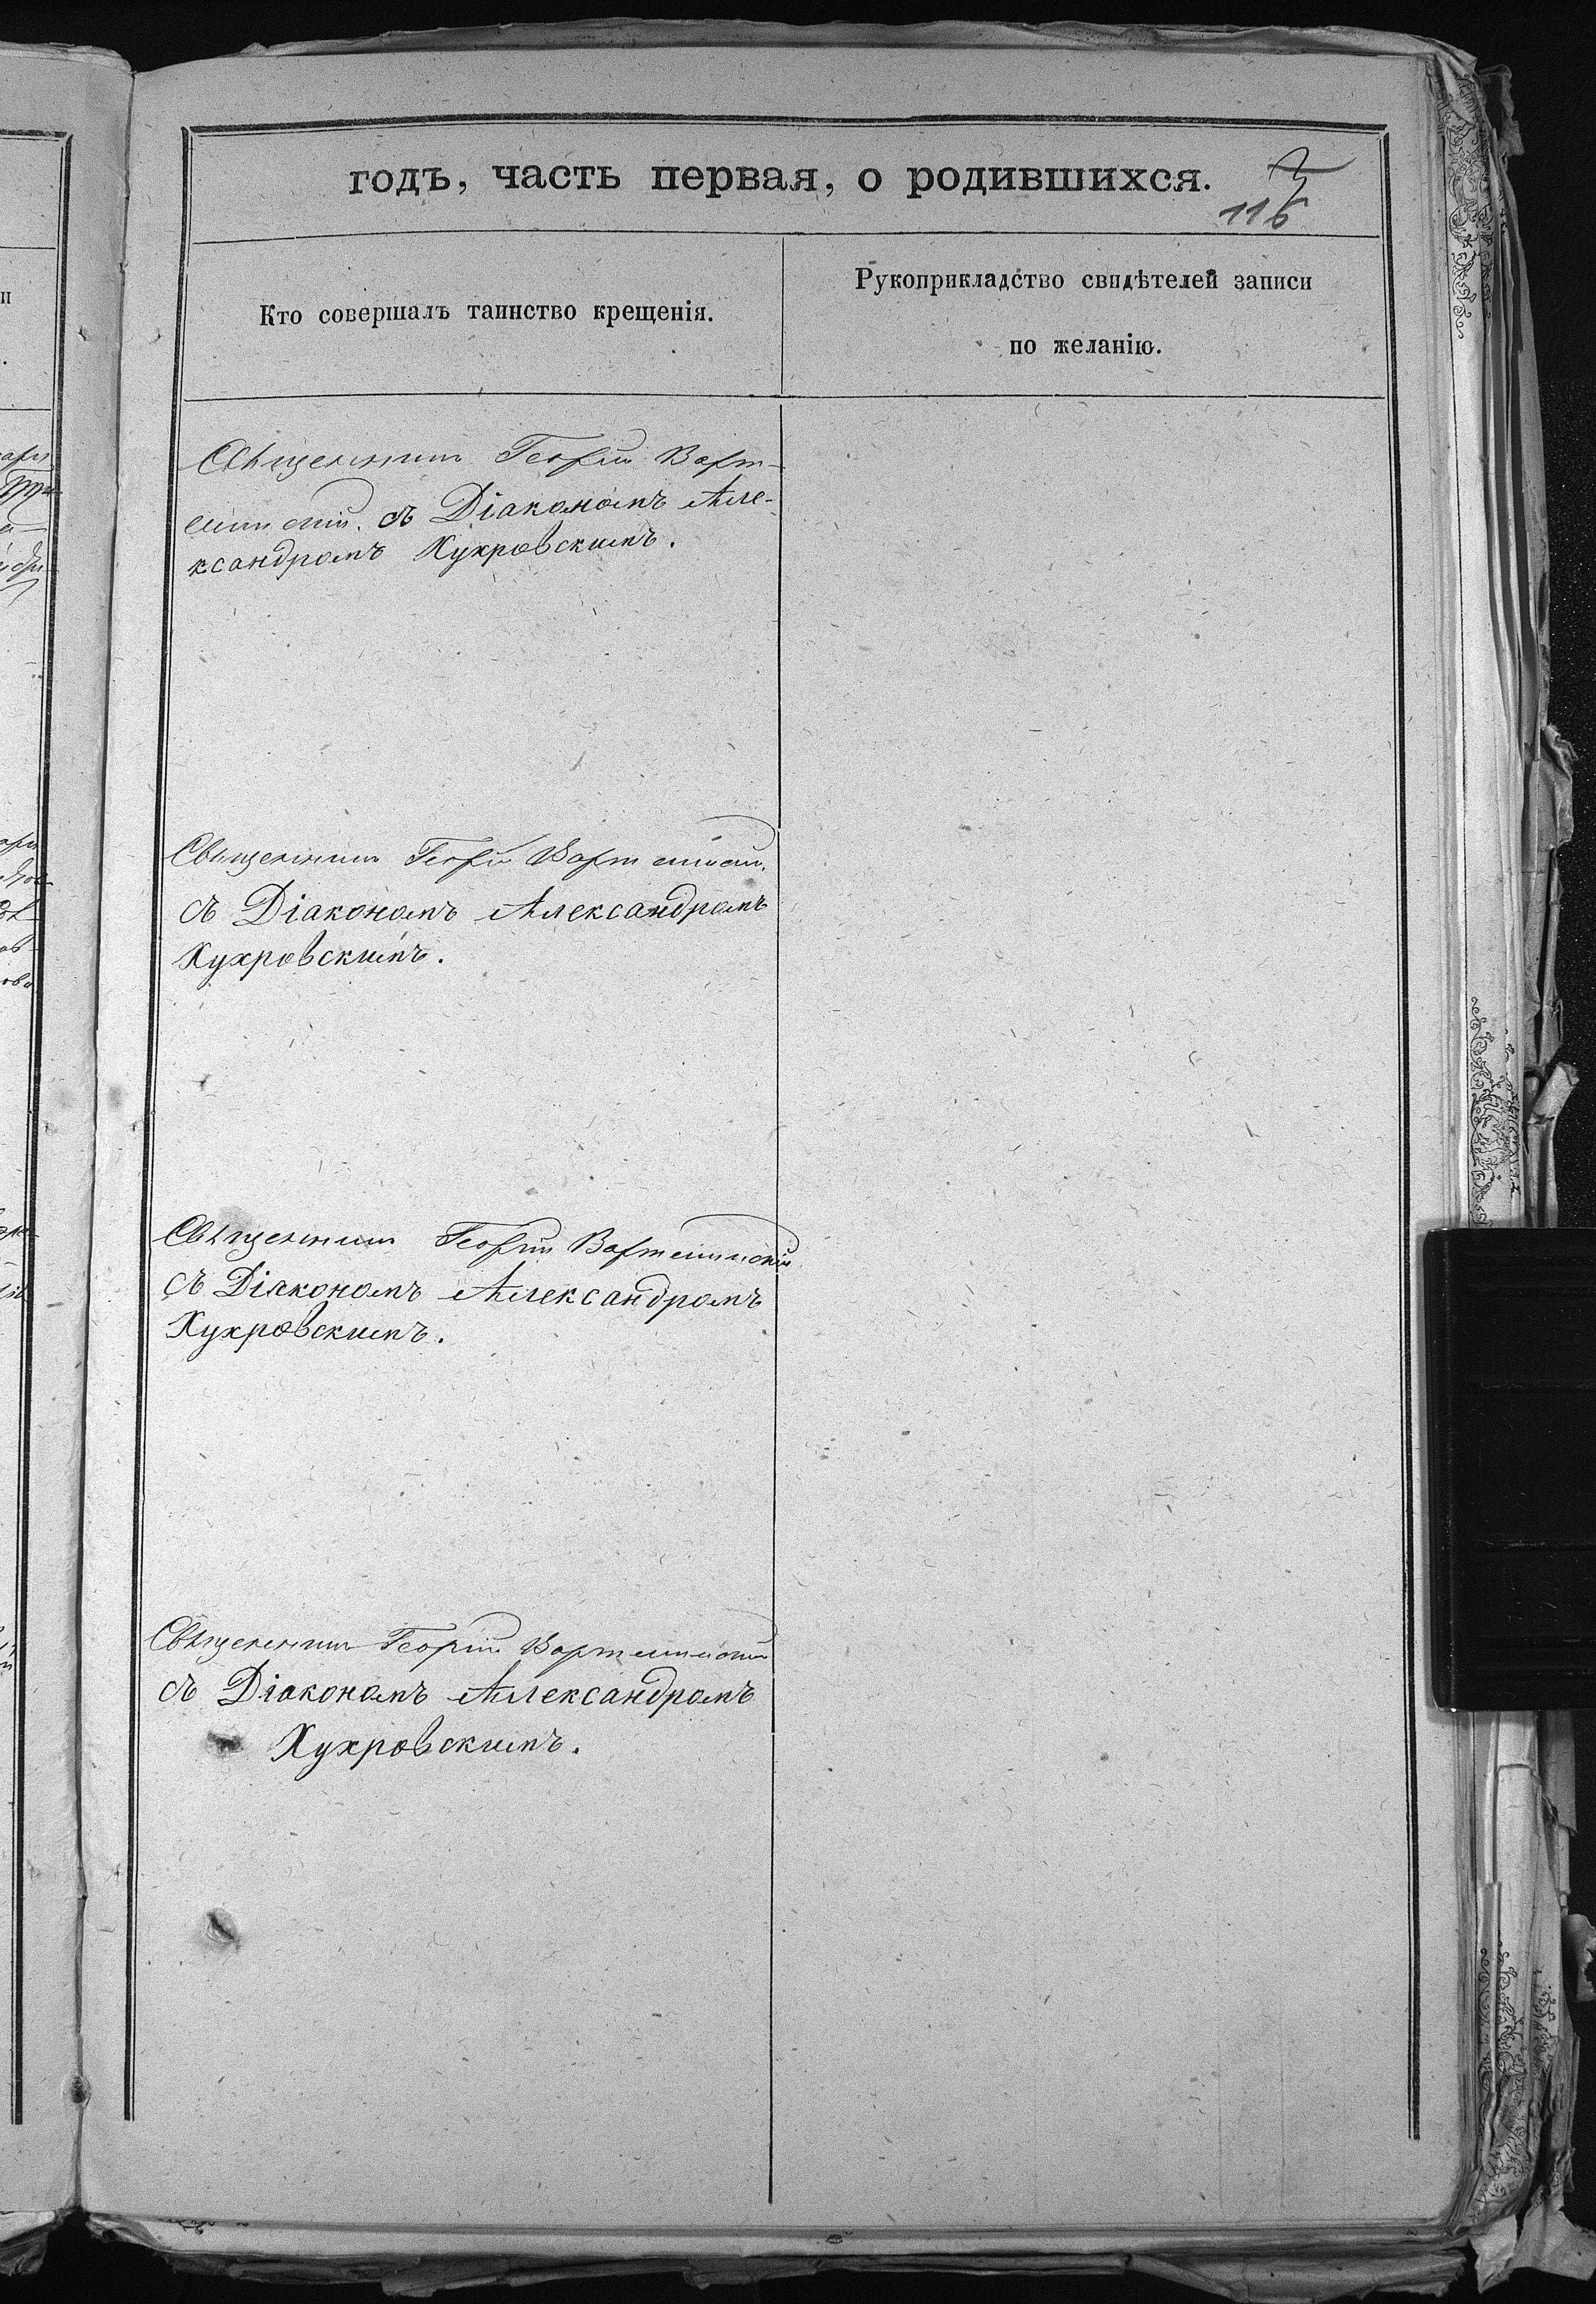 годъ, часть первая, о родившихся.
116
Кто совершалъ таинство крещенія.
Рукоприкладство свидѣтелей записи
по желанію.
Священникъ Георгій
съ Діакономъ Але-
ксандромъ Кухровскимъ.
Священникъ Георгій
съ Діакономъ Александромъ
Кухровскимъ.
Священникъ Георгій
съ Діакономъ Александромъ
Кухровскимъ.
Священникъ Георгій
съ Діакономъ Александромъ
Кухровскимъ.